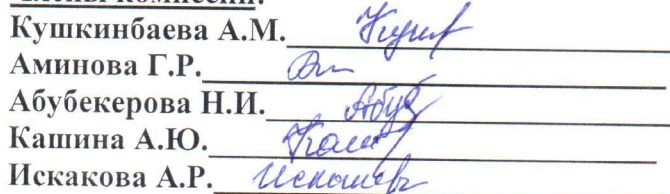 Члены комиссии:
Кушкинбаева А.М.
Аминова Г.Р.
Абубекерова Н.И.
Кашина А.Ю.
Искакова А.Р.